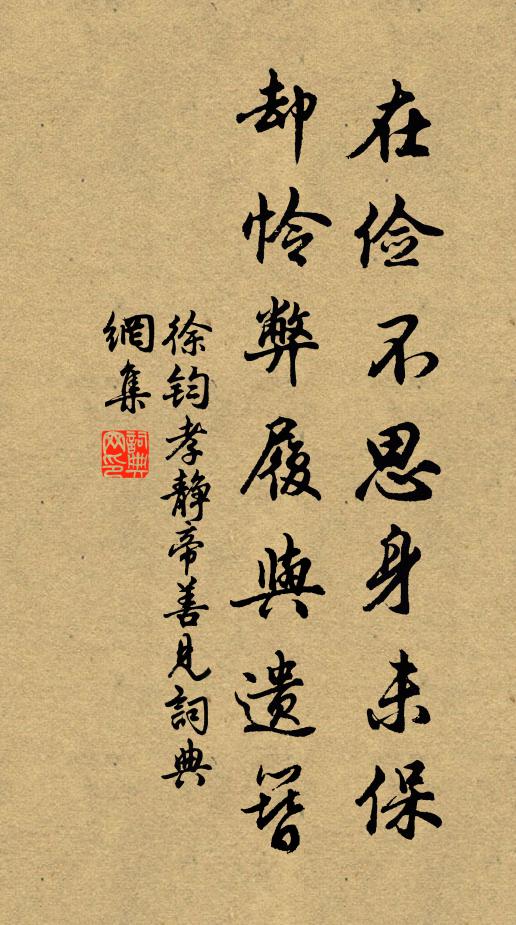 在俭不思身未保
却怜弊履與遗簪
徐钧孝静帝善见詞典
網集
詞典网印